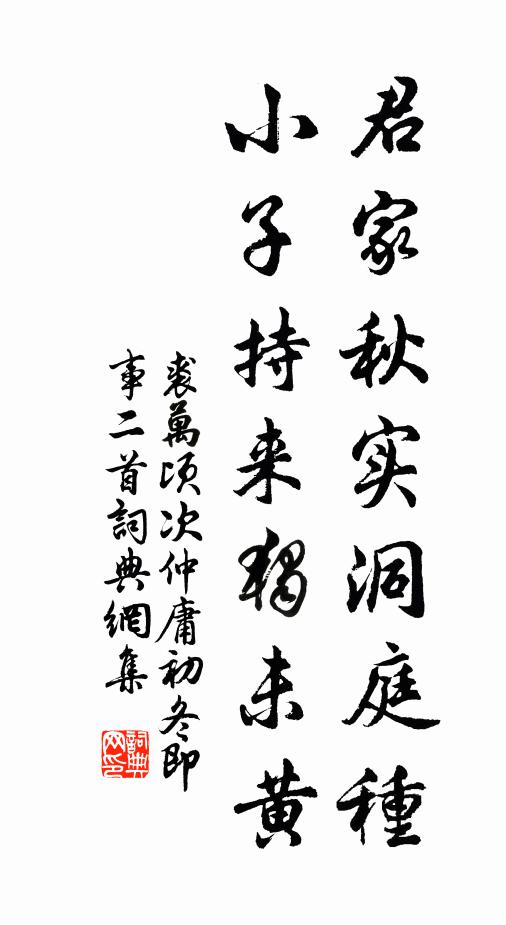 君家秋实洞庭種
小子持来獨未黄
裘萬頃次仲庸初冬即
事二首詞典網集
詞典
网印